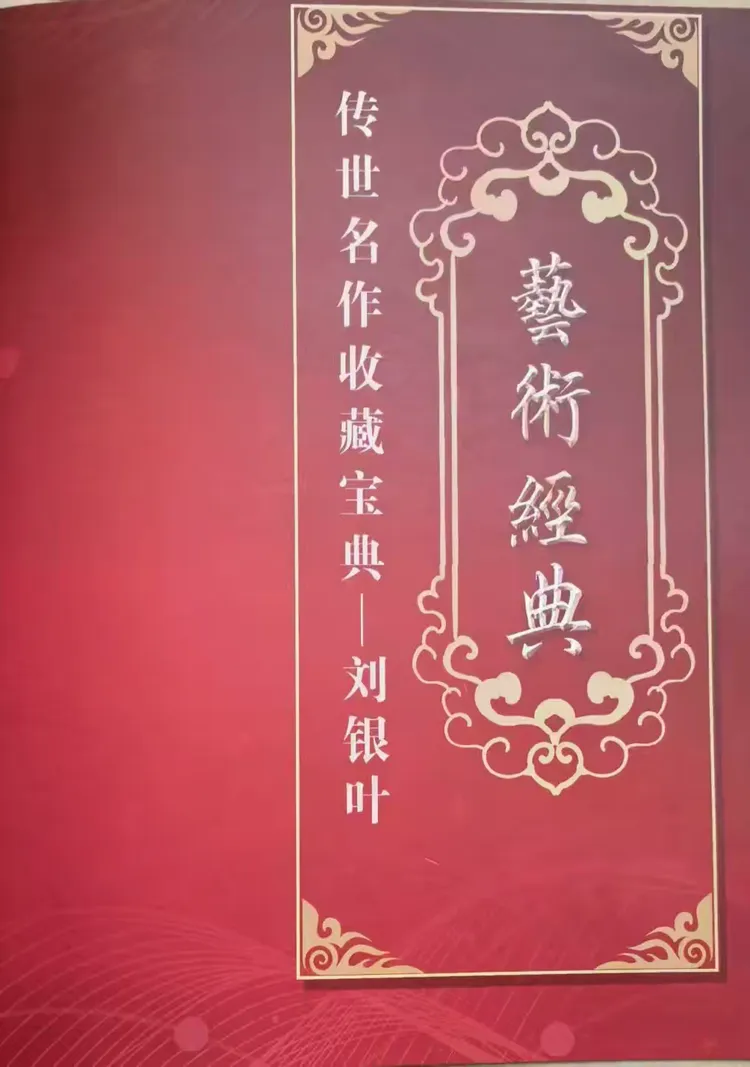 藝術經典
传世名作收藏宝典—刘银叶